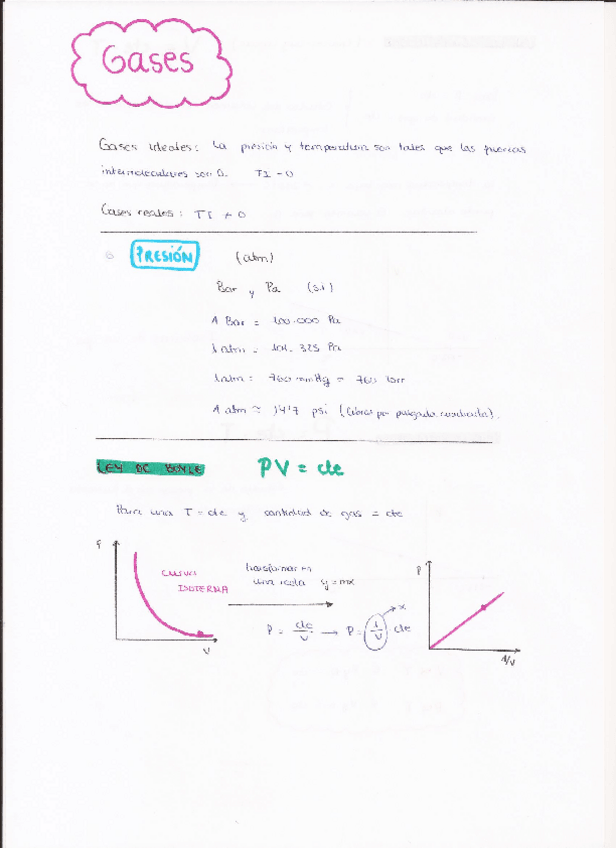 Gases
Gases ideales: La presión y temperatura son tales que las fuerzas
intermoleculares son 0. TI = 0
Gases reales: TI ≠ 0
PRESIÓN (atm)
Bar y Pa (S.I)
1 Bar = 100.000 Pa
1 atm = 101.325 Pa
1 atm = 760 mmHg = 760 torr
1 atm ≈ 14'7 psi (libras por pulgada cuadrada).
LEY DE BOYLE PV = cte
Para una T = cte y cantidad de gas = cte
P
CURVA
ISOTERMA
V
transformar en
una recta y = mx
P = cte/V → P = 1/V cte
x
P
1/V